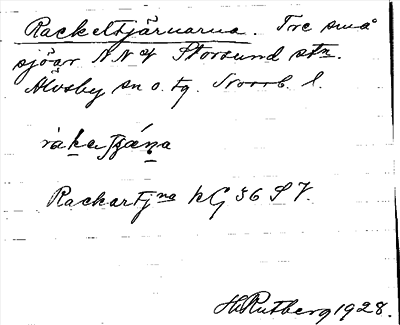 Rackeltjärnarna. Tre små
sjöar NNV Storsund stn.
Älvsby sn o. tg. Norrb. l.
Rackartjna KG 36 SV.
H Rutberg 1928.